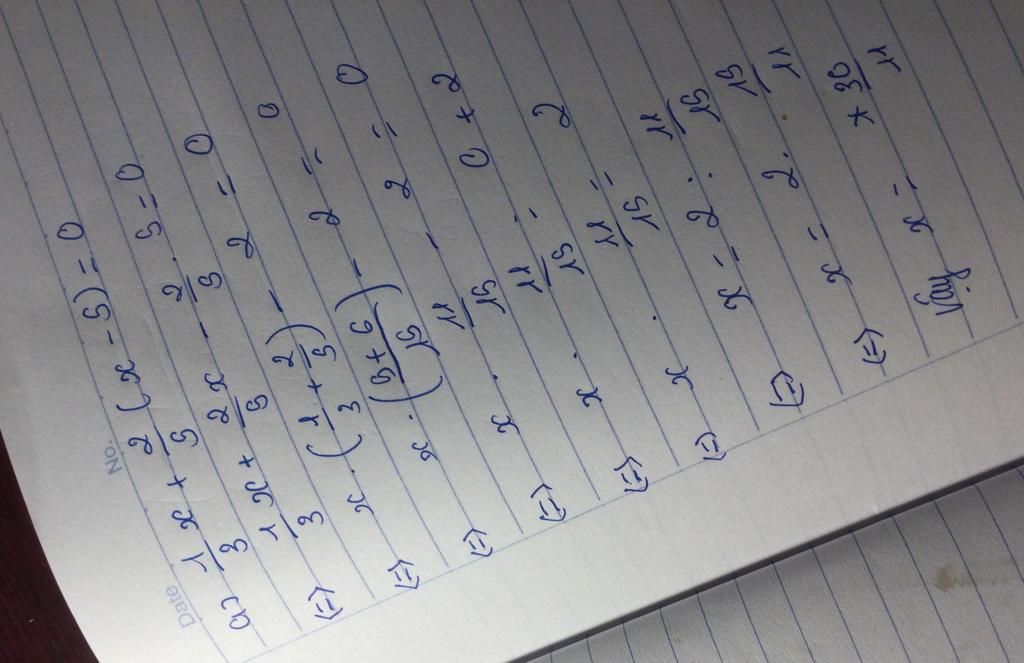 Date No.
a) 1/3 x + 2/5 (x - 5) = 0
(=) 1/3 x + 2/5 x - 2/5 . 5 = 0
(=) x . (1/3 + 2/5) - 2 = 0
(=) x . (5+6/15) - 2 = 0
(=) x . 11/15 - 2 = 0
(=) x . 11/15 = 0 + 2
(=) x . 11/15 = 2
x = 2 : 11/15
(=) x = 2 . 15/11
(=) x = 30/11
Vậy x =